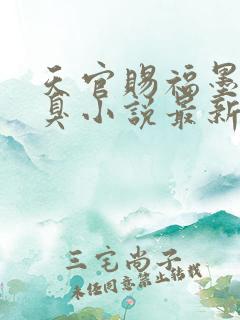 天官赐福墨
真小说最新
三宅尚子
未经同意禁止转载